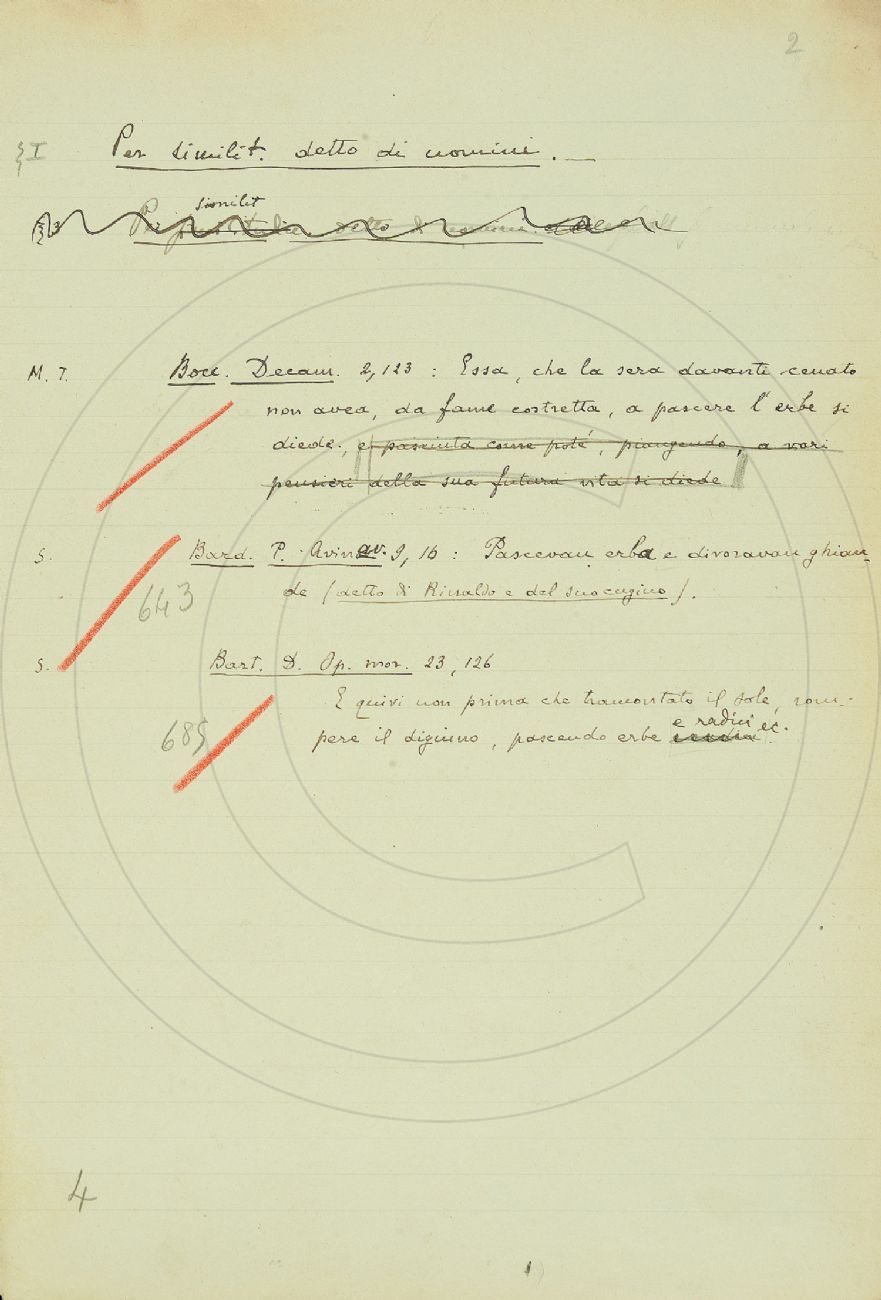 2
§ I Per similit. detto di uomini.
similit
M. T. Bocc. Decam. 2, 123 : Essa, che la sera davanti cenato
non avea, da fame costretta, a pascere l'erbe si
diede., e pasciuta come poté, piangendo, a vari
pensieri della sua futura vita si diede
S. Bard. P. Avinav. 9, 16 : Pascevan erba e divoravan ghian-
643 de (detto di Rinaldo e del suo cugino).
S. Bart. D. Op. mor. 23, 126
E quivi non prima che tramontato il sole, rom-
e radici ec.
685 pere il digiuno, pascendo erbe
4